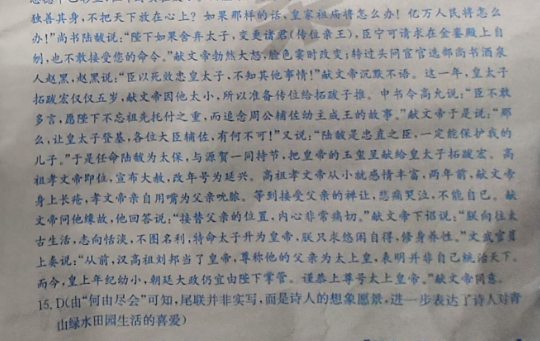 独善其身,不把天下放在心上?如果那样的话,皇家祖庙将怎么办!亿万人民将怎么
办!”尚书陆馛说:“陛下如果舍弃太子,变更诸君(传位亲王),臣宁可请求在金銮殿上自
刎,也不敢接受您的命令。”献文帝勃然大怒,脸色霎时改变;转过头问宦官选部尚书酒泉
人赵黑,赵黑说:“臣以死效忠皇太子,不知其他事情!”献文帝沉默不语。这一年,皇太子
拓跋宏仅仅五岁,献文帝因他太小,所以准备传位给拓跋子推。中书令高允说:“臣不敢
多言,愿陛下不忘祖先托付之重,而追念周公辅佐幼主成王的故事。”献文帝于是说:“那
么,让皇太子登基,各位大臣辅佐,有何不可!”又说:“陆馛是忠直之臣,一定能保护我的
儿子。”于是任命陆馛为太保,与源贺一同持节,把皇帝的玉玺呈献给皇太子拓跋宏。高
祖孝文帝即位,宣布大赦,改年号为延兴。高祖孝文帝从小就感情丰富,两年前,献文帝
身上长疮,孝文帝亲自用嘴为父亲吮脓。等到接受父亲的禅让,悲痛哭泣,不能自已。献
文帝问他缘故,他回答说:“接替父亲的位置,内心非常痛切。”献文帝下诏说:“朕向往太
古生活,志向恬淡,不图名利;特命太子升为皇帝,朕只求悠闲自得,修身养性。”文武官员
上奏说:“从前,汉高祖刘邦当了皇帝,尊称他的父亲为太上皇,表明并非自己统治天下。
而今,皇上年纪幼小,朝廷大政仍宜由陛下掌管。谨恭上尊号太上皇帝。”献文帝同意。
15.D(由“何由尽会”可知,尾联并非实写,而是诗人的想象愿景,进一步表达了诗人对青
山绿水田园生活的喜爱)